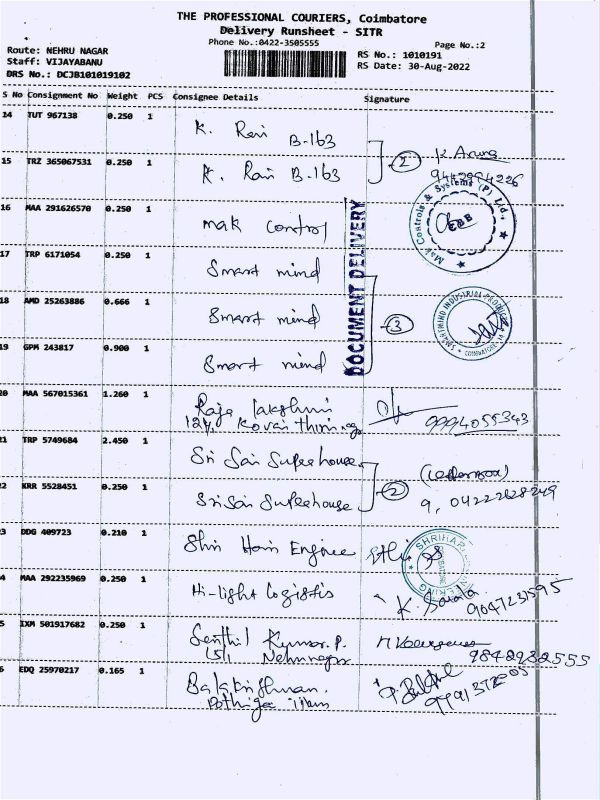 THE PROFESSIONAL COURIERS, Coimbatore
Delivery Runsheet - SITR
Phone No.:0422-3505555
Page No.:2
Route: NEHRU NAGAR
RS No.: 1010191
Staff: VIJAYABANU
RS Date: 30-Aug-2022
DRS No.: DCJB101019102
S No Consignment No Weight PCS Consignee Details Signature
14 TUT 967138 0.250 1 K. Ravi B-163
K. Aruna
15 TRZ 365067531 0.250 1 K. Ravi B-163 2
9442994226
16 MAA 291626570 0.250 1 mak control
Mak Controls & Systems (P) Ltd.,
DOCUMENT DELIVERY
17 TRP 6171054 0.250 1 Smart mind
18 AMD 25263886 0.666 1 Smart mind 3
SMARTMIND INDUSTRIAL
19 GPM 243817 0.900 1 Smart mind
20 MAA 567015361 1.260 1 Raja lakshmi
124, Kovai 9994055343
21 TRP 5749684 2.450 1 Sri Sai
22 KRR 5528451 0.250 1 Sri Sai 2
9, 04222628249
3 DDG 409723 0.210 1 Shri Hari Enginee
4 MAA 292235969 0.250 1 Hi-light Logistis
K. Sarala
9047231595
5 IXM 501917682 0.250 1 Senthil Kumar. P.
151, Nehrunagar 9842232555
6 EDQ 25970217 0.165 1 Balakrishnan.